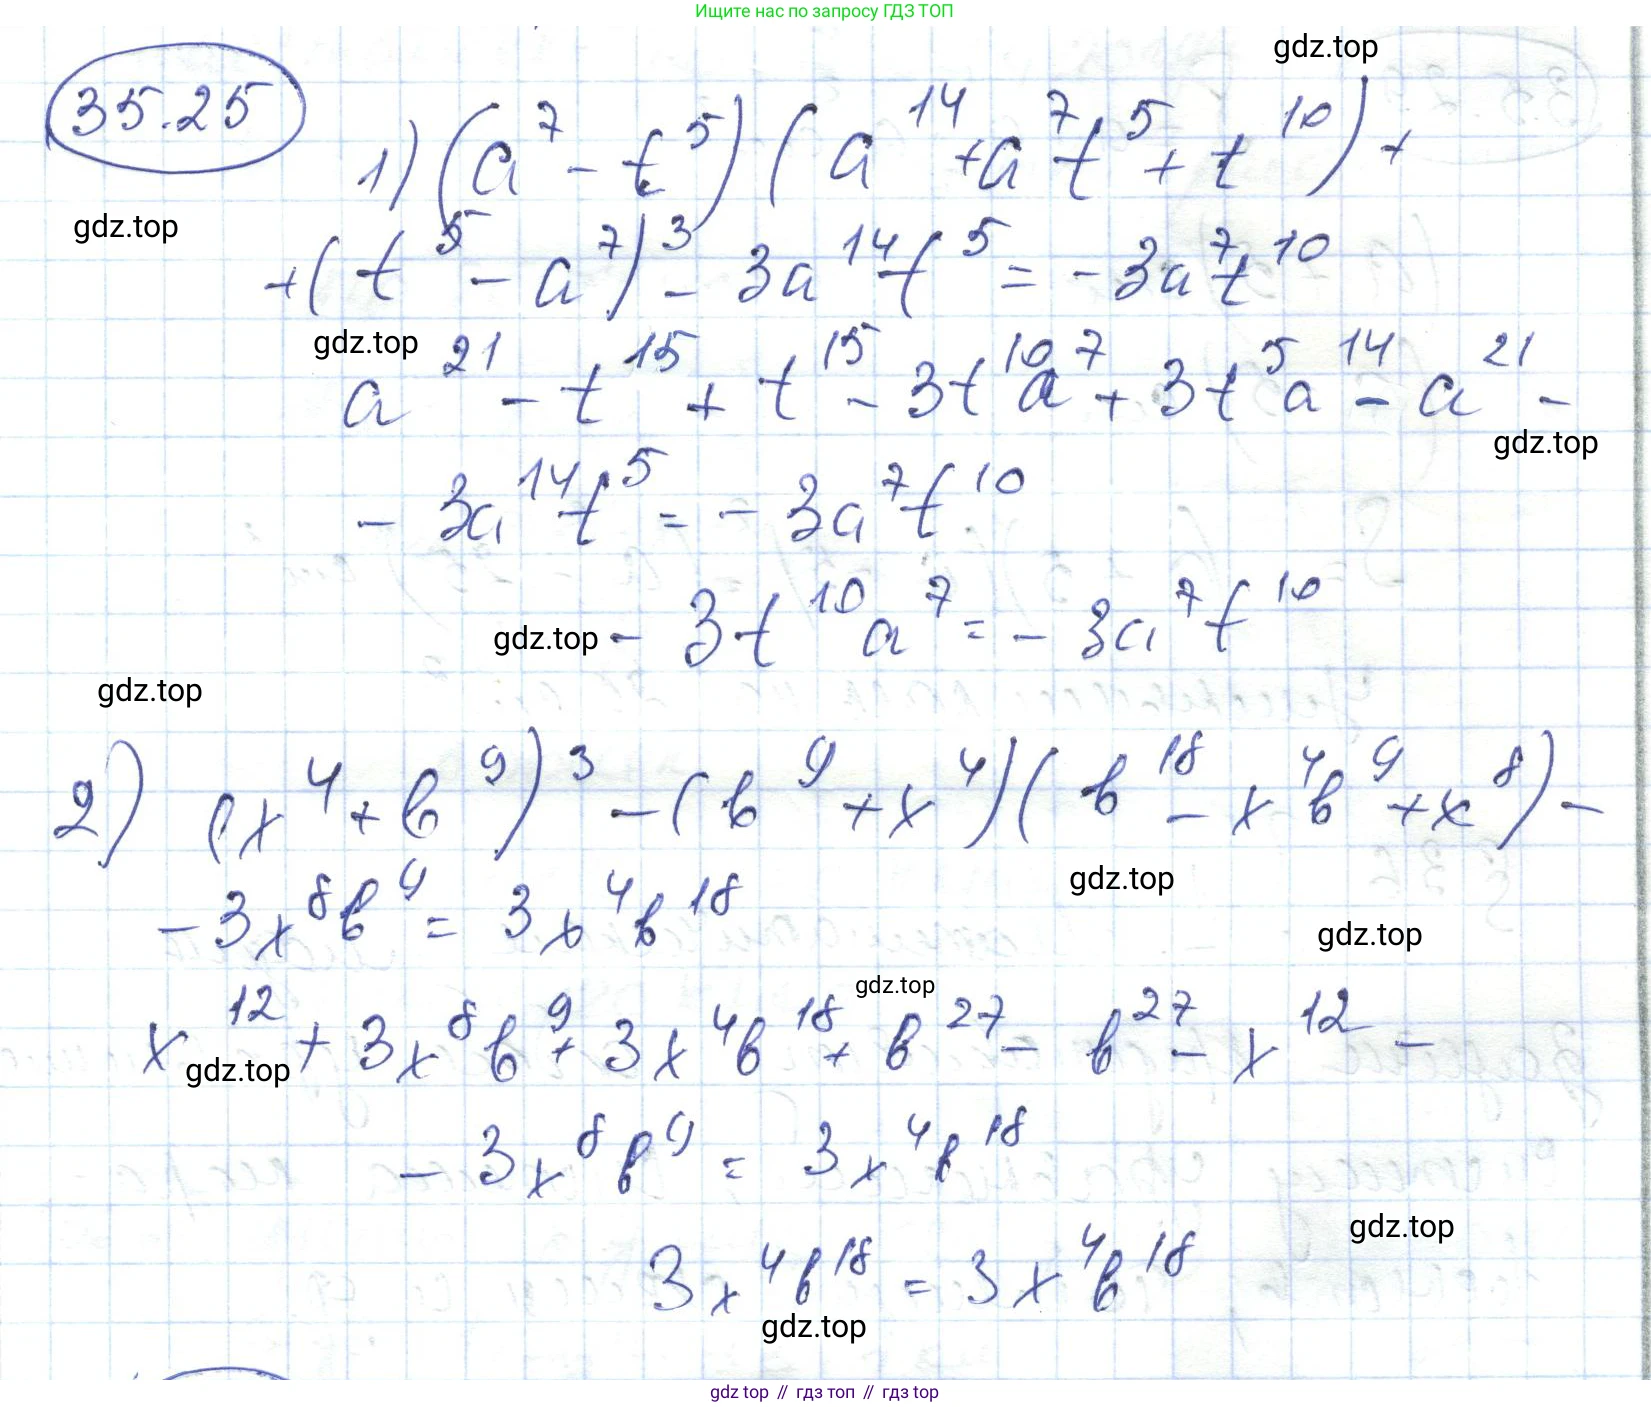 Ищите нас по запросу ГДЗ ТОП
gdz.top
35.25
1) (a⁷ - t⁵)(a¹⁴ + a⁷t⁵ + t¹⁰) +
gdz.top
+ (t⁵ - a⁷)³ - 3a¹⁴t⁵ = - 3a⁷t¹⁰
gdz.top
a²¹ - t¹⁵ + t¹⁵ - 3t¹⁰a⁷ + 3t⁵a¹⁴ - a²¹ -
gdz.top
- 3a¹⁴t⁵ = - 3a⁷t¹⁰
gdz.top - 3t¹⁰a⁷ = - 3a⁷t¹⁰
gdz.top
2) (x⁴ + b⁹)³ - (b⁹ + x⁴)(b¹⁸ - x⁴b⁹ + x⁸) -
gdz.top
- 3x⁸b⁹ = 3x⁴b¹⁸
gdz.top
gdz.top
x¹² + 3x⁸b⁹ + 3x⁴b¹⁸ + b²⁷ - b²⁷ - x¹² -
gdz.top
- 3x⁸b⁹ = 3x⁴b¹⁸
gdz.top
3x⁴b¹⁸ = 3x⁴b¹⁸
gdz.top
gdz top // гдз топ // гдз top